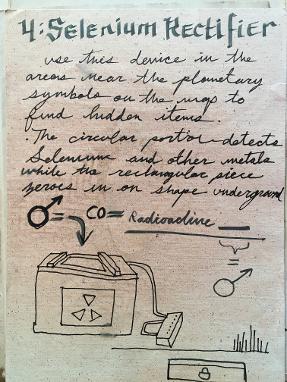 4: Selenium Rectifier
use this device in the
areas near the planetary
symbols on the map to
find hidden items.
. The circular portion detects
Selenium and other metals
while the rectangular piece
zeroes in on shape underground
♂= CO= Radioactive
=
♂